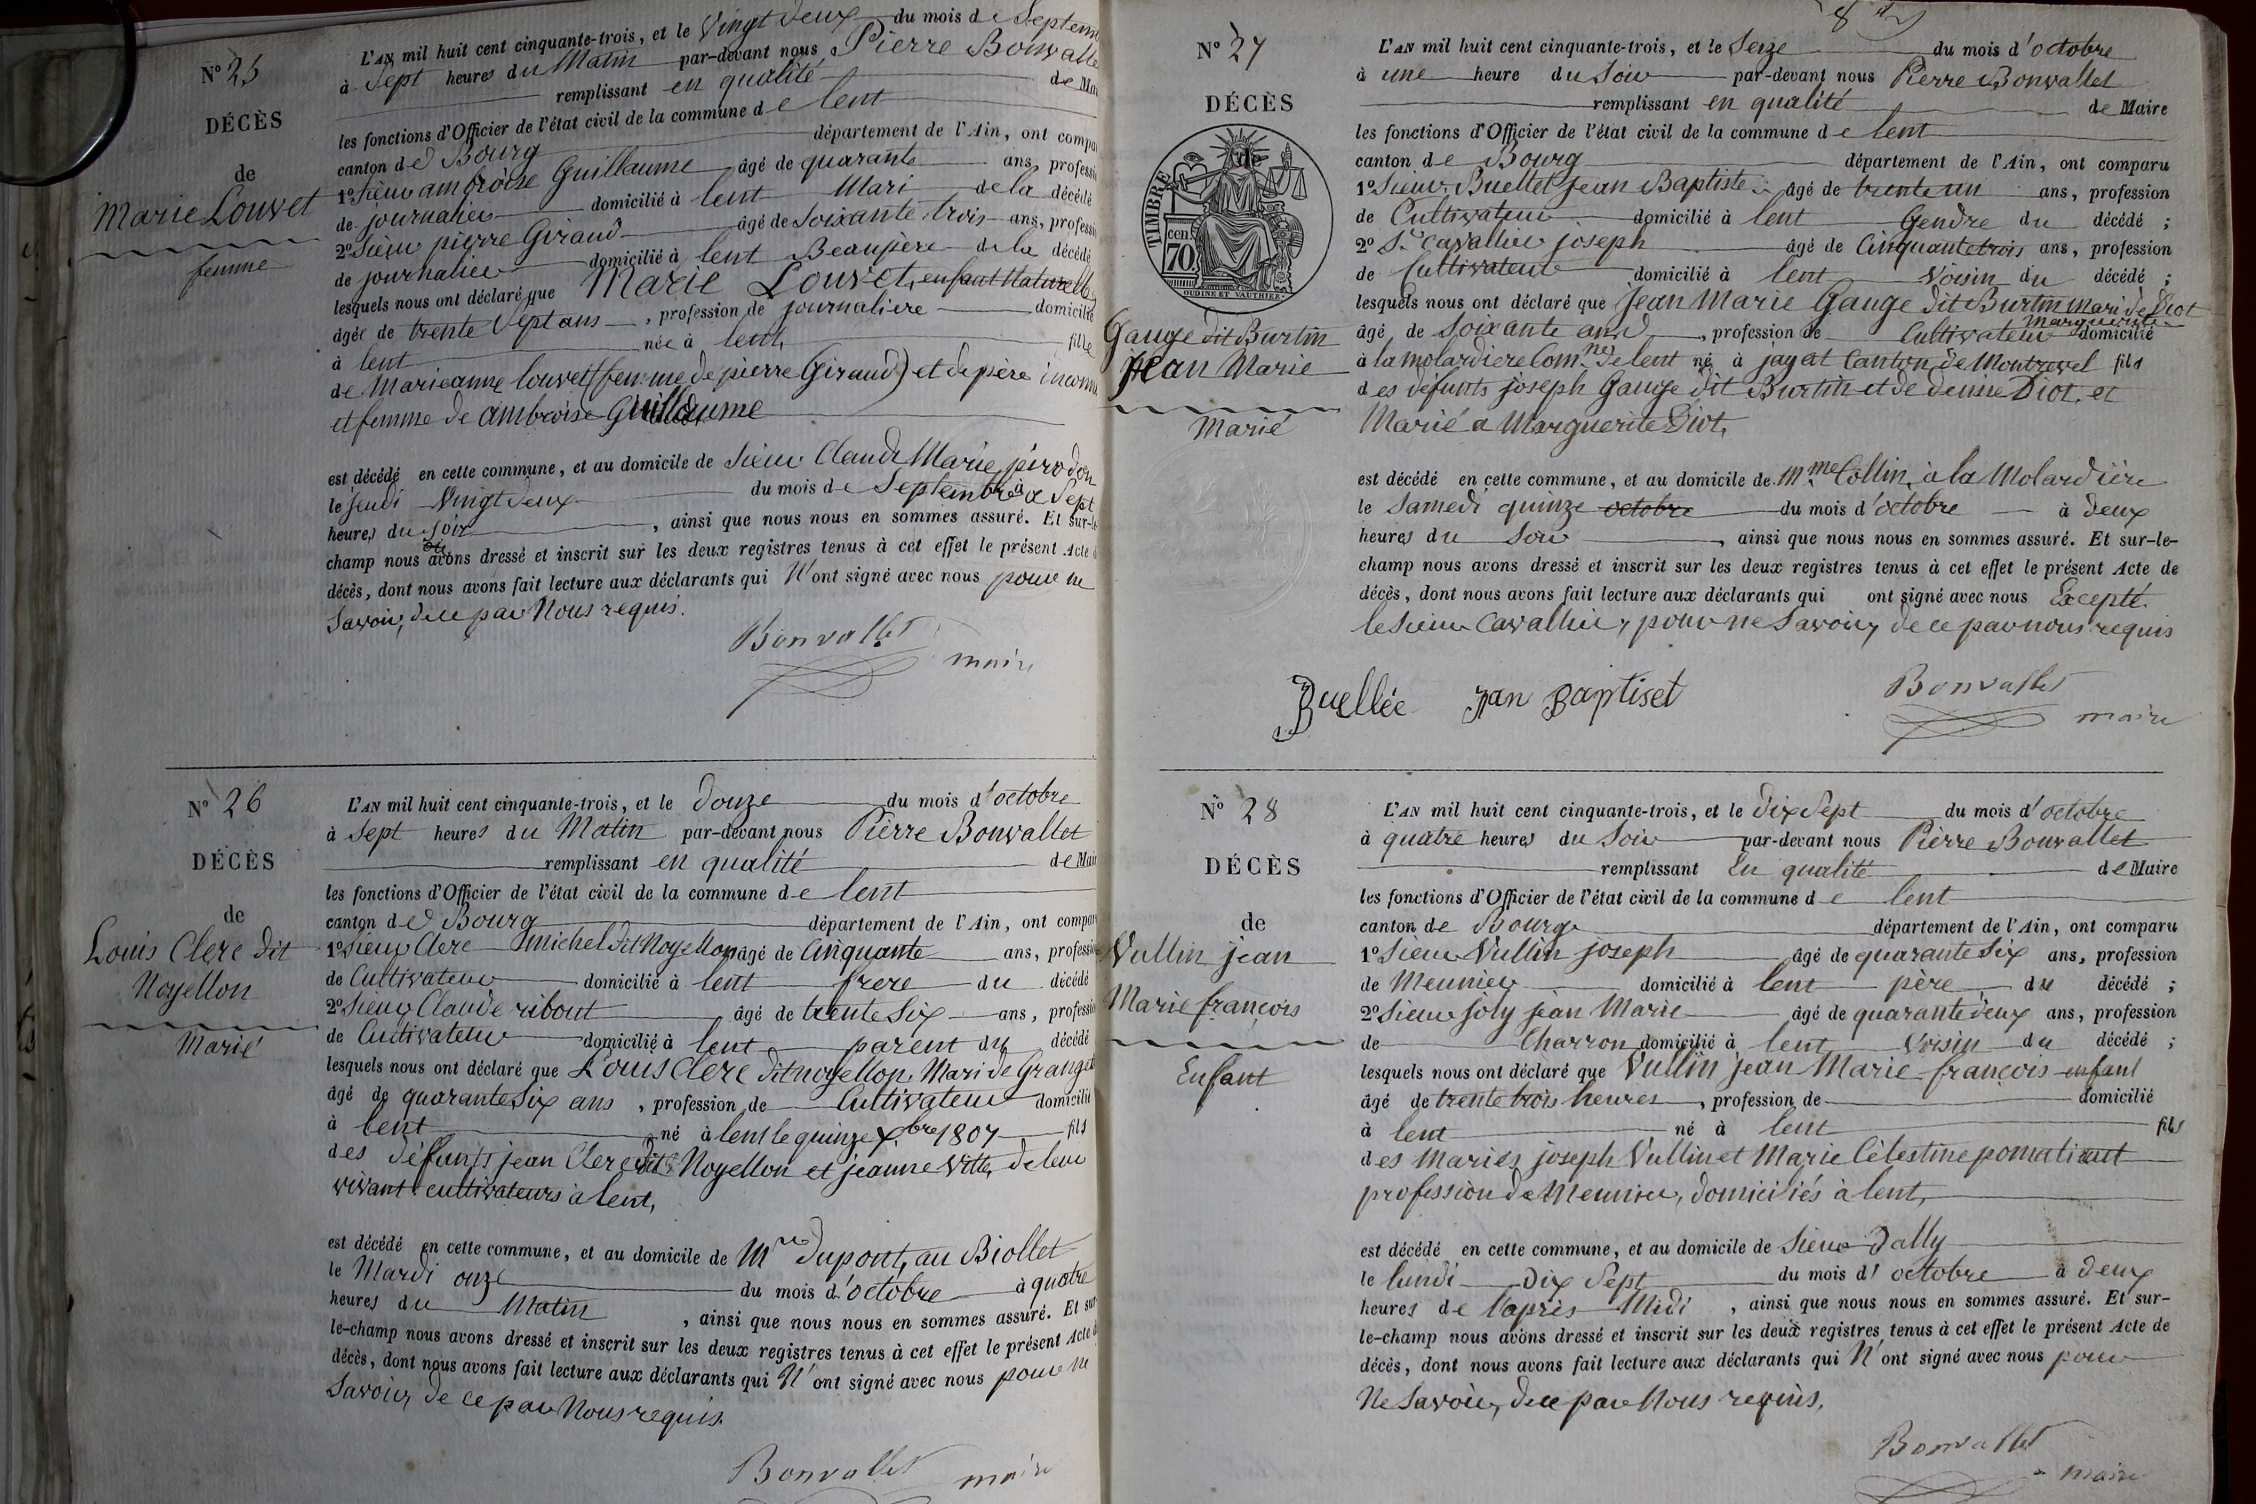 N° 25
DÉCÈS
de
Marie Louvet
femme
L'AN mil huit cent cinquante-trois, et le Vingt deux du mois de Septem
à Sept heures du Matin par-devant nous Pierre Bonvalle
remplissant en qualité de Mai
les fonctions d'Officier de l'état civil de la commune de lent
canton de Bourg département de l'Ain, ont compa
1° Sieur ambroise Guillaume âgé de quarante ans, professi
de journalier domicilié à lent Mari de la décédé
2° Sieur pierre Giraud âgé de soixante trois ans, professi
de journalier domicilié à lent Beaupère de la décédé
lesquels nous ont déclaré que Marie Louvet, enfant Naturelle
âgée de trente Sept ans, profession de journaliere domicilié
à lent née à lent, fille
de Marieanne louvet (femme de pierre Giraud) et de père inconnu
et femme de ambroise Guillaume
est décédé en cette commune, et au domicile de Sieur Claude Marie pirodon
le jeudi Vingt deux du mois de Septembre à Sept
heures du soir, ainsi que nous nous en sommes assuré. Et sur-le-
champ nous avons dressé et inscrit sur les deux registres tenus à cet effet le présent Acte d
décès, dont nous avons fait lecture aux déclarants qui N'ont signé avec nous pour ne
Savoir, de ce par Nous requis.
Bonvallet
maire
N° 26
DÉCÈS
de
Louis Clere dit
Noyellon
Marié
L'AN mil huit cent cinquante-trois, et le douze du mois d'octobre
à Sept heures du Matin par-devant nous Pierre Bonvallet
remplissant en qualité de Mair
les fonctions d'Officier de l'état civil de la commune de lent
canton de Bourg département de l'Ain, ont compar
1° Sieur Clere michel dit Noyellon âgé de Cinquante ans, professio
de Cultivateur domicilié à lent frere du décédé
2° Sieur Claude ribout âgé de trente Six ans, professio
de Cultivateur domicilié à lent parent du décédé
lesquels nous ont déclaré que Louis Clere dit noyellon, Mari de Granget
âgé de quarante Six ans, profession de Cultivateur domicilié
à lent né à lent le quinze Xbre 1807 fils
des défunts jean Clere dit Noyellon et jeanne Ville, de leur
vivant cultivateurs à lent,
est décédé en cette commune, et au domicile de Mre dupont, au Biollet
le Mardi onze du mois d'octobre à quatre
heures du Matin, ainsi que nous nous en sommes assuré. Et sur
le-champ nous avons dressé et inscrit sur les deux registres tenus à cet effet le présent Acte d
décès, dont nous avons fait lecture aux déclarants qui N'ont signé avec nous pour ne
Savoir, de ce par Nous requis.
Bonvallet
maire
N° 27
DÉCÈS
de
TIMBRE
cen
70
OUDINÉ ET VAUTHIER.
Gauge dit Burtin
Jean Marie
Marié
L'AN mil huit cent cinquante-trois, et le Seize du mois d'octobre
à une heure du Soir par-devant nous Pierre Bonvallet
remplissant en qualité de Maire
les fonctions d'Officier de l'état civil de la commune de lent
canton de Bourg département de l'Ain, ont comparu
1° Sieur Buellet jean Baptiste âgé de trente un ans, profession
de Cultivateur domicilié à lent Gendre du décédé ;
2° Sr Cavallier joseph âgé de Cinquante trois ans, profession
de Cultivateur domicilié à lent Voisin du décédé ;
lesquels nous ont déclaré que Jean Marie Gauge dit Burtin mari de Diot
Marguerite
âgé de Soixante ans, profession de Cultivateur domicilié
à la molardiere Comne de lent né à jayat Canton de Montrevel fils
des défunts joseph Gauge dit Burtin et de denise Diot, et
Marié a Marguerite Diot,
est décédé en cette commune, et au domicile de Mme Collin, à la Molardière
le Samedi quinze octobre du mois d'octobre à deux
heures du Soir, ainsi que nous nous en sommes assuré. Et sur-le-
champ nous avons dressé et inscrit sur les deux registres tenus à cet effet le présent Acte de
décès, dont nous avons fait lecture aux déclarants qui ont signé avec nous Excepté
le Sieur Cavallier, pour ne Savoir, de ce par nous requis
Buellée Jan Baptiset
Bonvallet
maire
N° 28
DÉCÈS
de
Vullin jean
Marie françois
Enfant
L'AN mil huit cent cinquante-trois, et le dix Sept du mois d'octobre
à quatre heures du Soir par-devant nous Pierre Bonvallet
remplissant En qualité de Maire
les fonctions d'Officier de l'état civil de la commune de lent
canton de Bourg département de l'Ain, ont comparu
1° Sieur Vullin joseph âgé de quarante Six ans, profession
de Meunier domicilié à lent père du décédé ;
2° Sieur joly jean Marie âgé de quarante deux ans, profession
de Charron domicilié à lent Voisin du décédé ;
lesquels nous ont déclaré que Vullin jean Marie françois enfant
âgé de trente trois heures, profession de domicilié
à lent né à lent fils
des Mariés joseph Vullin et Marie Célestine pomatiaut
profession de Meunier, domiciliés à lent,
est décédé en cette commune, et au domicile de Sieur Dally
le lundi Dix Sept du mois d'octobre à deux
heures de l'après Midi, ainsi que nous nous en sommes assuré. Et sur-
le-champ nous avons dressé et inscrit sur les deux registres tenus à cet effet le présent Acte de
décès, dont nous avons fait lecture aux déclarants qui N'ont signé avec nous pour
Ne Savoir, de ce par Nous requis,
Bonvallet
maire